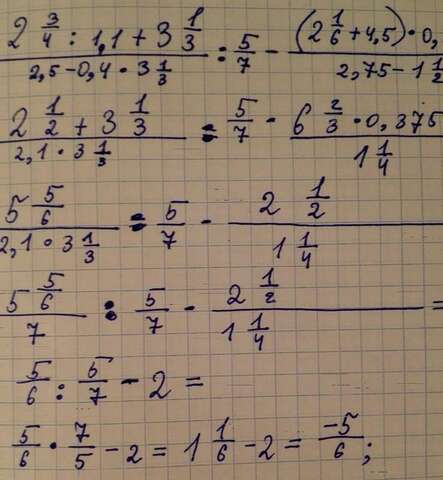 (2 3/4 : 1,1 + 3 1/3) / (2,5 - 0,4 · 3 1/3) : 5/7 - ((2 1/6 + 4,5) · 0,) / (2,75 - 1 1/2)
(2 1/2 + 3 1/3) / (2,1 · 3 1/3) : 5/7 - (6 2/3 · 0,375) / (1 1/4)
(5 5/6) / (2,1 · 3 1/3) : 5/7 - (2 1/2) / (1 1/4)
(5 5/6) / 7 : 5/7 - (2 1/2) / (1 1/4) =
5/6 : 5/7 - 2 =
5/6 · 7/5 - 2 = 1 1/6 - 2 = -5/6 ;